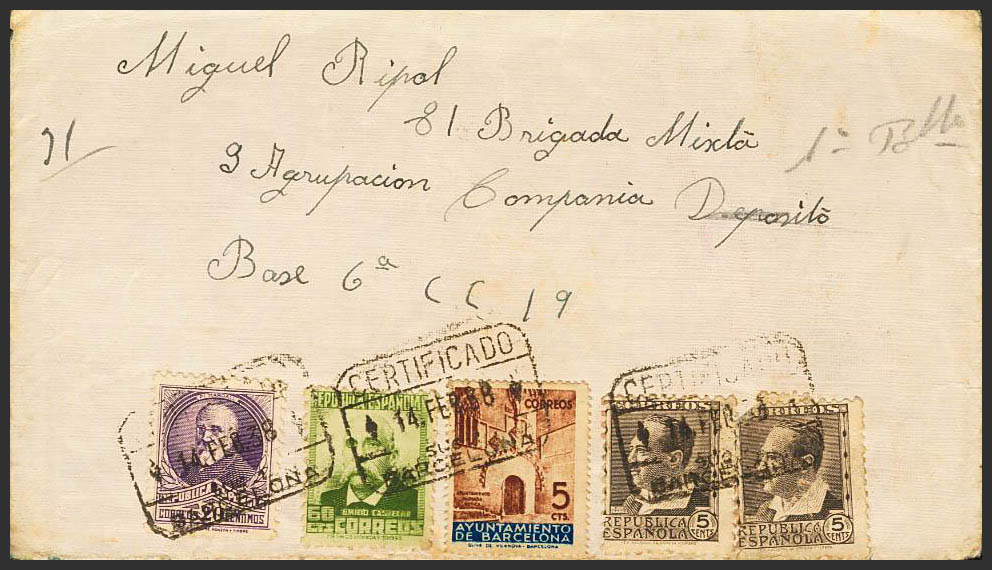 Miguel Ripol
81 Brigada Mixta
1ª Blle
91
9 Agrupacion Compania Deposito
Base 6ª C C 19
CERTIFICADO
14.FEB.38
BARCELONA
14.FEB.38
BARCELONA
CERTIFICADO
BARCELONA
REPUBLICA
CORREOS 20 CENTIMOS
REPUBLICA ESPAÑOLA
60
CTS
EMILIO CASTELAR
CORREOS
CORREOS
5
CTS.
AYUNTAMIENTO
DE BARCELONA
OLIVA DE VILANOVA-BARCELONA
CORREOS
REPUBLICA
ESPAÑOLA
5
CENTS
CORREOS
REPUBLICA
ESPAÑOLA
5
CENTS